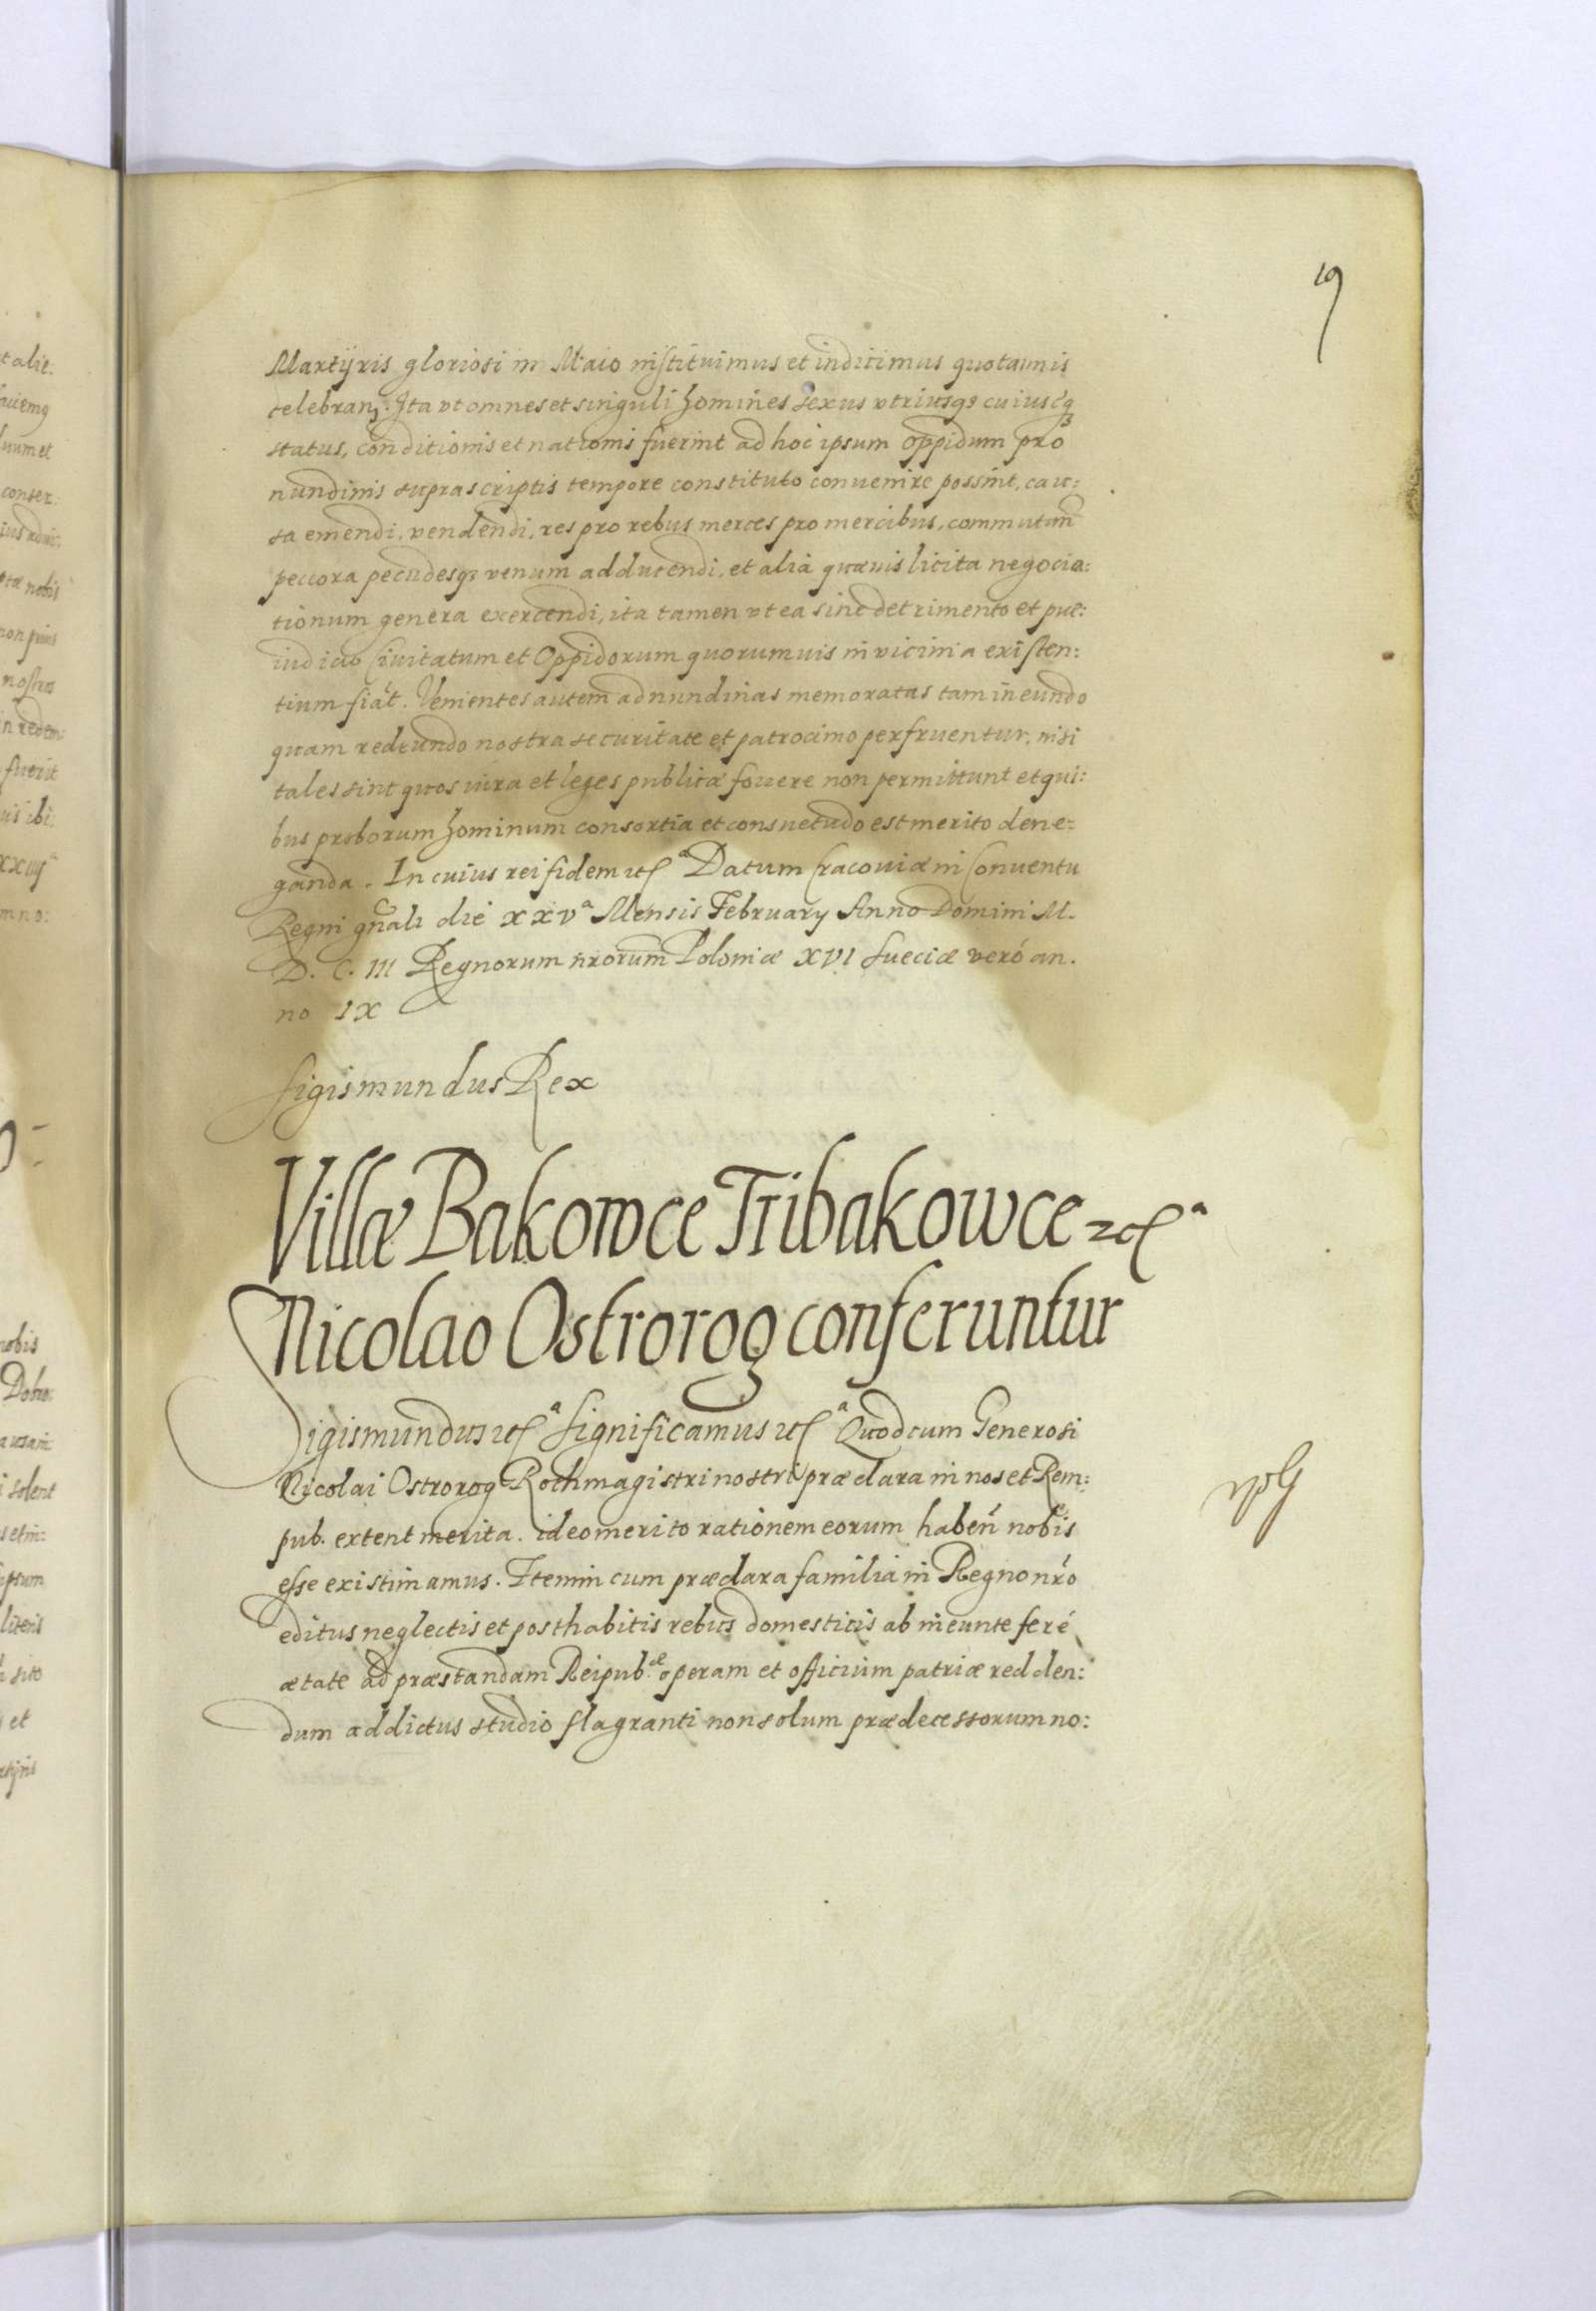 19
Martyris gloriosi in Maio instituimus et indicimus quotannis
celebran̄. Ita vt omnes et singuli homines sexus vtriusqȝ cuiuscqȝ
status, conditionis et nationis fuerint ad hoc ipsum oppidum pro
nundinis suprascriptis tempore constituto conuenire possint, cau:
sa emendi, vendendi, res pro rebus merces pro mercibus, commutan̄
peccora pecudesqȝ venum adducendi, et alia quæuis licita negocia:
tionum genera exercendi, ita tamen vt ea sine detrimento et præ:
iudicio Ciuitatum et Oppidorum quorumuis in vicinia existen:
tium fiāt. Venientes autem ad nundinas memoratas tam ineundo
quam redeundo nostra securitate et patrocinio perfruentur, nisi
tales sint quos iura et leges publicæ fouere non permittunt et qui:
bus proborum hominum consortia et consuetudo est merito dene:
ganda. In cuius rei fidem etc̄ª Datum Cracouiæ in Conuentu
Regni gn̄ali die xxvª Mensis February Anno Domini M.
D. C. III Regnorum nr̄orum Poloniæ XVI Sueciæ veró an.
no IX
Sigismundus Rex
Villæ Bakowce Tribakowce etc̄ª
Nicolao Ostrorog conferuntur
Sigismundus etc̄ª Significamus etc̄ª Quod cum Generosi
Nicolai Ostrorog Rothmagistri nostri præclara in nos et Rem:
pub. extent merita. ideo merito rationem eorum haben̄ nobis
esse existimamus. Etenim cum præclara familia in Regno nr̄o
editus neglectis et posthabitis rebus domesticis ab ineunte feré
ætate ad præstandam Reipub.æ operam et officium patriæ redden:
dum addictus studio flagranti non solum prædecessorum no: